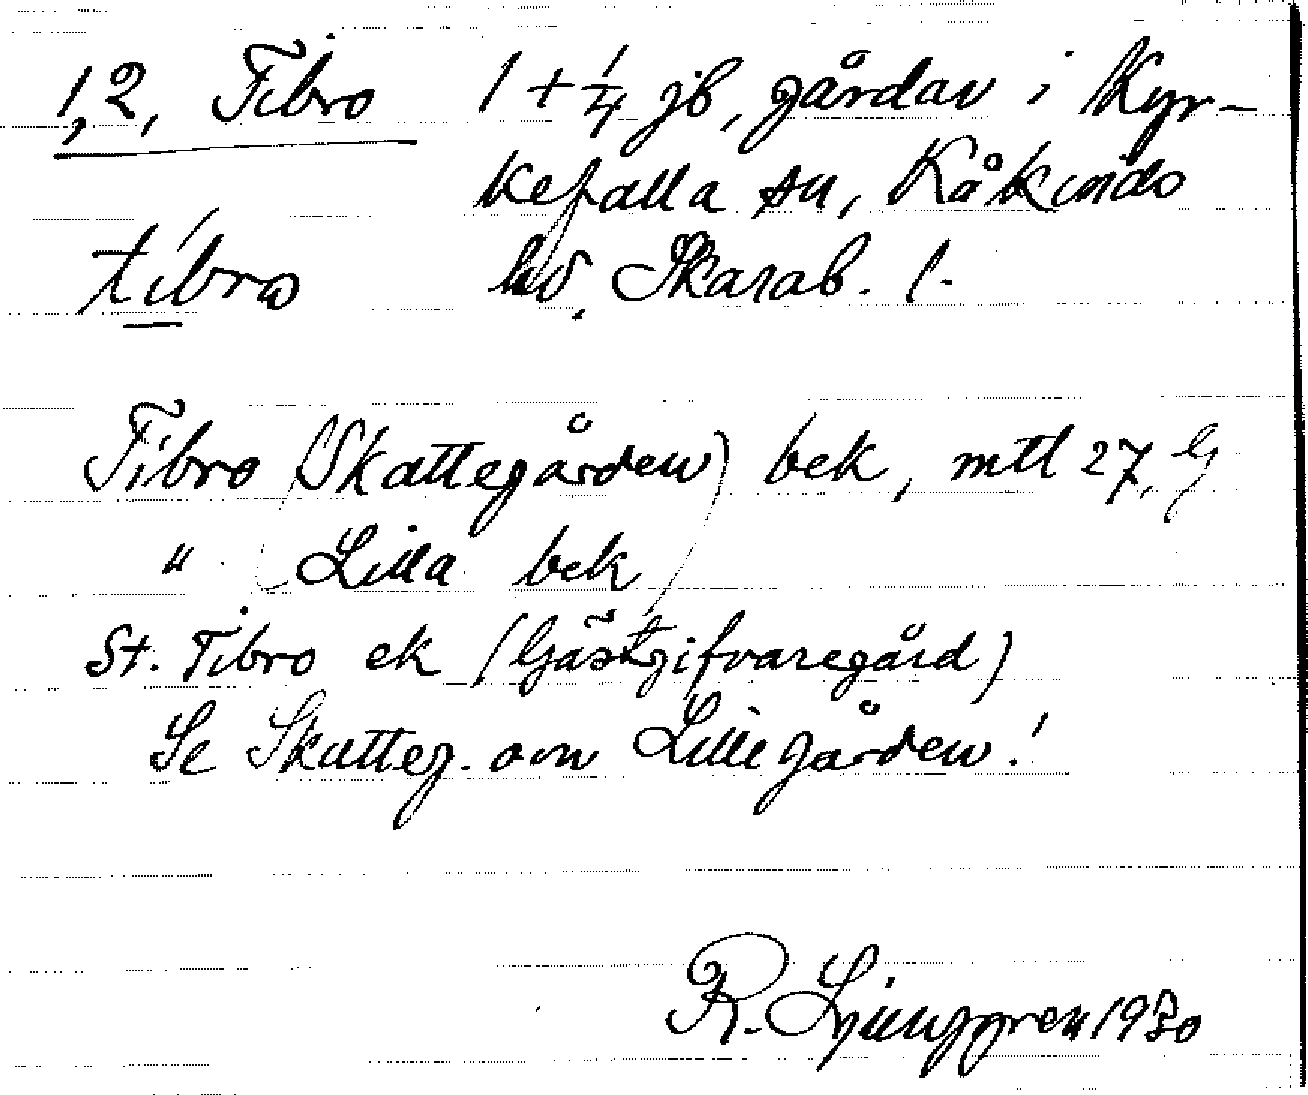 1,2, Tibro 1 + 1/4 jb, gårdar i Kyr-
kefalla sn, Kåkinds
tíbro hd, Skarab. l.
Tibro (Skattegården) bek, mtl 27, G
" (Lilla bek)
St. Tibro ek (Gästgifvaregård)
Se Skatteg. om Lillegården!
R. Ljunggren 1930